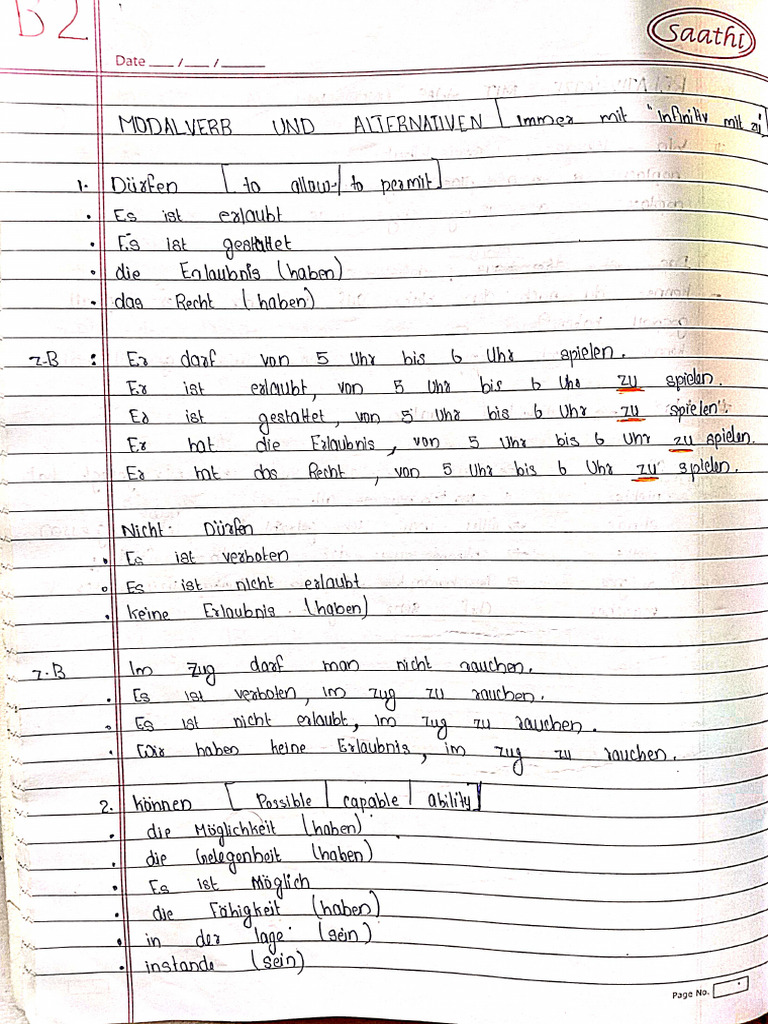 B2
Saathi
Date ___/___/_____
MODALVERB UND ALTERNATIVEN | Immer mit "Infinitiv mit zu"
1. Dürfen [to allow / to permit]
• Es ist erlaubt
• Es ist gestattet
• die Erlaubnis (haben)
• das Recht (haben)
z.B : Er darf von 5 Uhr bis 6 Uhr spielen.
Er ist erlaubt, von 5 Uhr bis 6 Uhr zu spielen.
Er ist gestattet, von 5 Uhr bis 6 Uhr zu spielen.
Er hat die Erlaubnis, von 5 Uhr bis 6 Uhr zu spielen.
Er hat das Recht, von 5 Uhr bis 6 Uhr zu spielen.
Nicht Dürfen
• Es ist verboten
• Es ist nicht erlaubt
• keine Erlaubnis (haben)
z.B Im Zug darf man nicht rauchen.
• Es ist verboten, im zug zu rauchen.
• Es ist nicht erlaubt, im zug zu rauchen.
• Wir haben keine Erlaubnis, im zug zu rauchen.
2. können [Possible | capable | ability]
• die Möglichkeit (haben)
• die Gelegenheit (haben)
• Es ist Möglich
• die Fähigkeit (haben)
• in der lage (sein)
• instande (sein)
Page No.